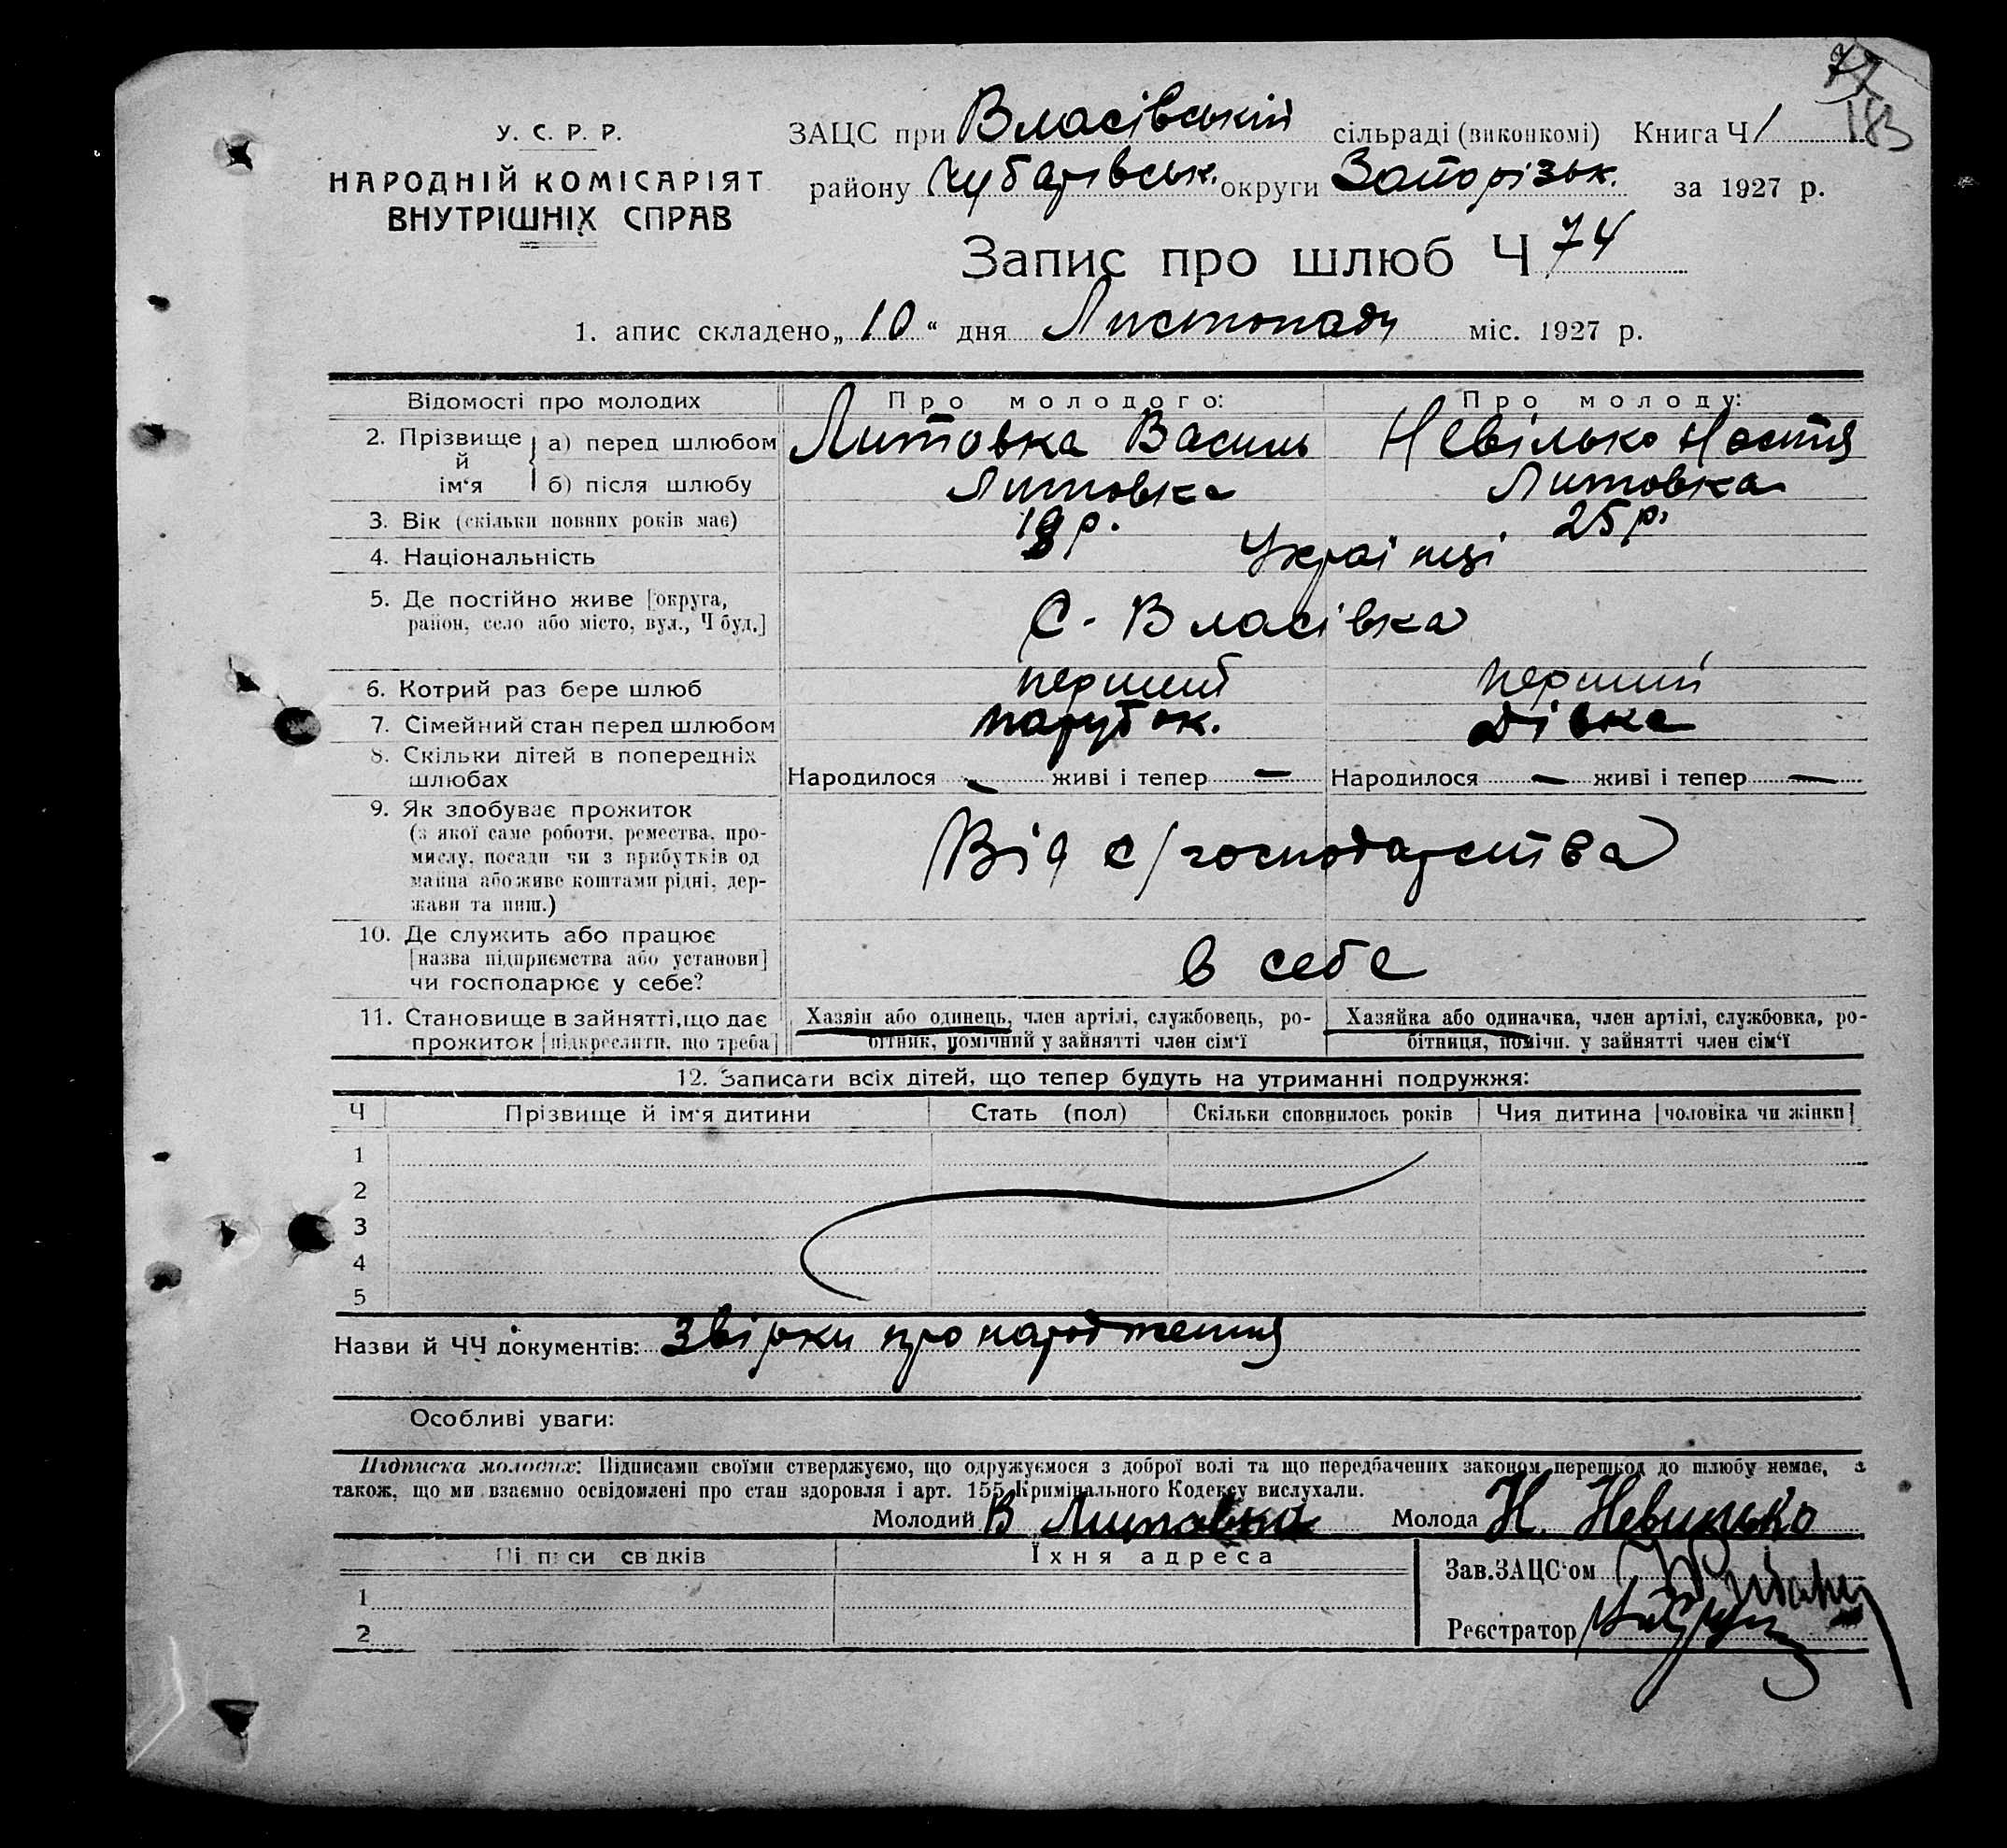 77
183
У. С. Р. Р.
НАРОДНІЙ КОМІСАРІЯТ
ВНУТРІШНІХ СПРАВ
ЗАЦС при Власівській сільраді (виконкомі) Книга Ч 1
району Чубарівськ. округи Запорізьк. за 1927 р.
Запис про шлюб Ч 74
1. апис складено „ 10 “ дня Листопаду міс. 1927 р.
Відомості про молодих Про молодого: Про молоду:
2. Прізвище й ім‘я а) перед шлюбом Литовка Василь Невілько Настя
б) після шлюбу Литовка Литовка
3. Вік (скільки повних років має) 18 р. 25 р.
4. Національність Українці
5. Де постійно живе [округа,
район, село або місто, вул., Ч буд.] С. Власівка
6. Котрий раз бере шлюб перший перший
7. Сімейний стан перед шлюбом парубок. дівка
8. Скільки дітей в попередніх
шлюбах Народилося — живі і тепер — Народилося — живі і тепер —
9. Як здобуває прожиток
(з якої саме роботи, ремества, про-
мислу, посади чи з прибутків од
майна або живе коштами рідні, дер-
жави та инш.) Від с/господарства
10. Де служить або працює
[назва підприємства або установи]
чи господарює у себе? в себе
11. Становище в зайнятті, що дає
прожиток [підкреслити, що треба]
Хазяїн або одинець, член артілі, службовець, ро-
бітник, помічний у зайнятті член сім‘ї
Хазяйка або одиначка, член артілі, службовка, ро-
бітниця, помічн. у зайнятті член сім‘ї
12. Записати всіх дітей, що тепер будуть на утриманні подружжя:
Ч Прізвище й ім‘я дитини Стать (пол) Скільки сповнилось років Чия дитина [чоловіка чи жінки]
1
2
3
4
5
Назви й ЧЧ документів: Звірки про народження
Особливі уваги:
Підписка молодих: Підписами своїми стверджуємо, що одружуємося з доброї волі та що передбачених законом перешкод до шлюбу немає, а
також, що ми взаємно освідомлені про стан здоровля і арт. 155 Кримінального Кодексу вислухали.
Молодий В Литовка Молода Н. Невилько
Пі п си св дків Їхня адреса
Зав. ЗАЦС‘ом
1
Реєстратор
2